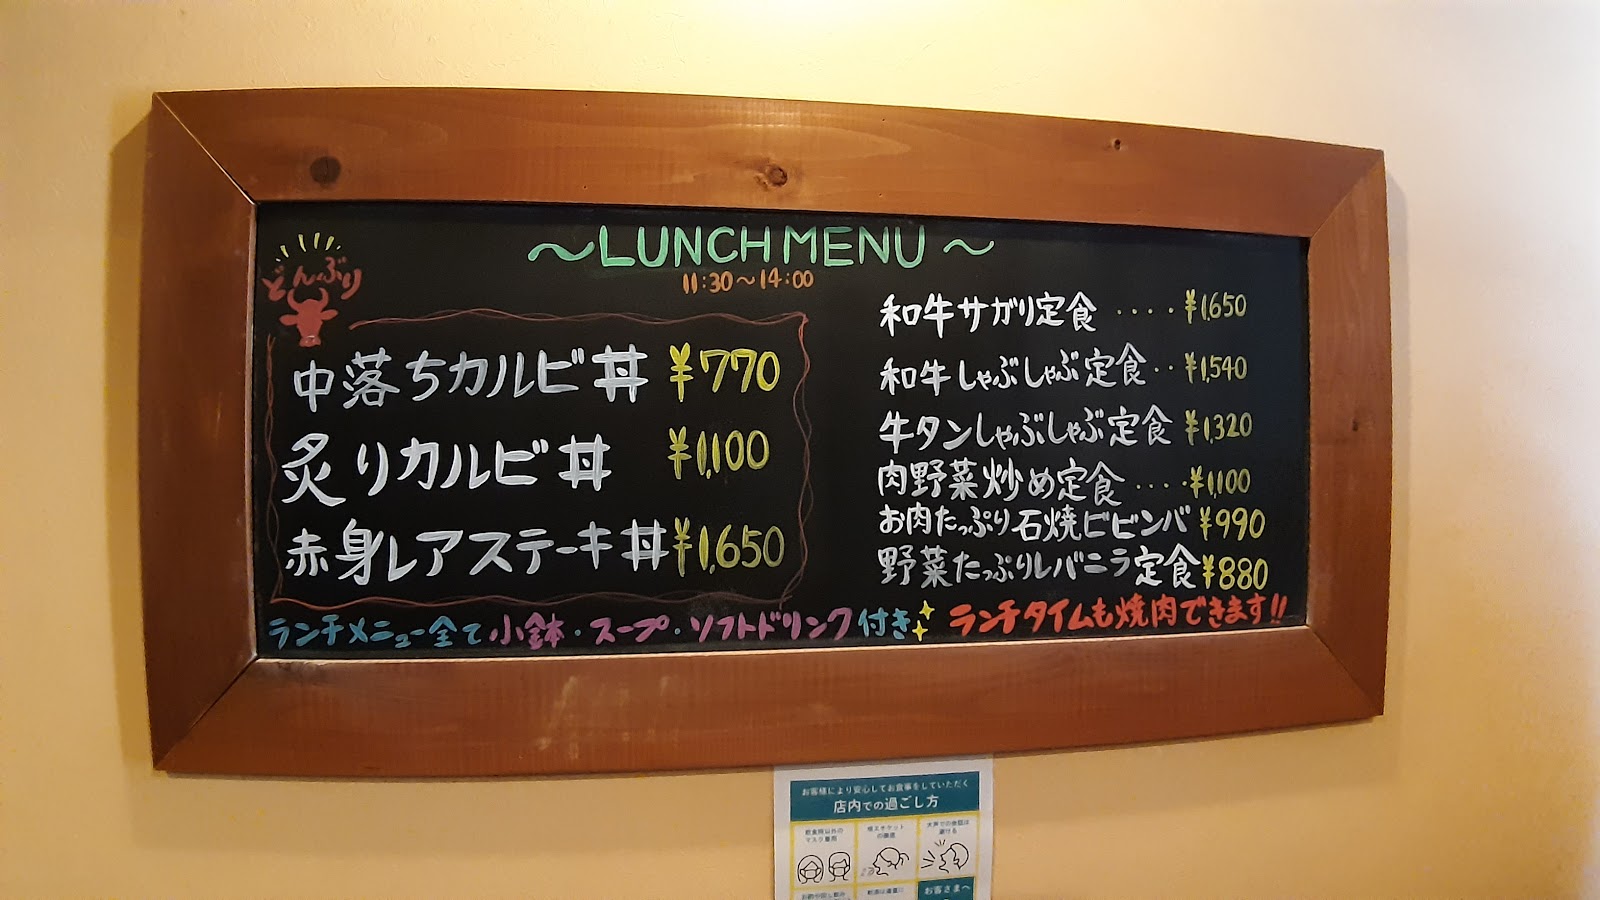 ～LUNCH MENU～
11:30～14:00
どんぶり
中落ちカルビ丼 ¥770
炙りカルビ丼 ¥1,100
赤身レアステーキ丼 ¥1,650
和牛サガリ定食 ････ ¥1,650
和牛しゃぶしゃぶ定食 ･･ ¥1,540
牛タンしゃぶしゃぶ定食 ¥1,320
肉野菜炒め定食 ････ ¥1,100
お肉たっぷり石焼ビビンバ ¥990
野菜たっぷりレバニラ定食 ¥880
ランチメニュー全て小鉢・スープ・ソフトドリンク付き
ランチタイムも焼肉できます!!
お客様により安心してお食事をしていただく
店内での過ごし方
飲食時以外のマスク着用
咳エチケットの徹底
大声での会話は避ける
お客さまへ